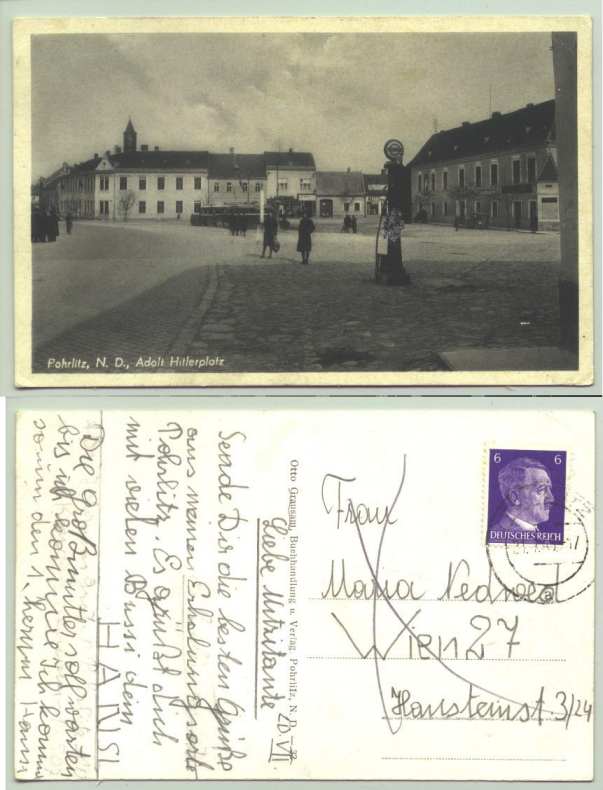 Pohrlitz, N. D., Adolf Hitlerplatz
6 6
DEUTSCHES REICH
Otto Grausang, Buchhandlung u. Verlag, Pohrlitz, N. D.
20. VII
Liebe Mitzitante
Sende Dir die besten Grüße
aus meinem Erholungsorte
Pohrlitz. Es grüßt dich
mit vielen Bussi dein
HANSI
Die Großmutter soll warten
bis ich komme ich komme
den 1.
Frau
Maria
Wien 27
Hansteinst. 3/24